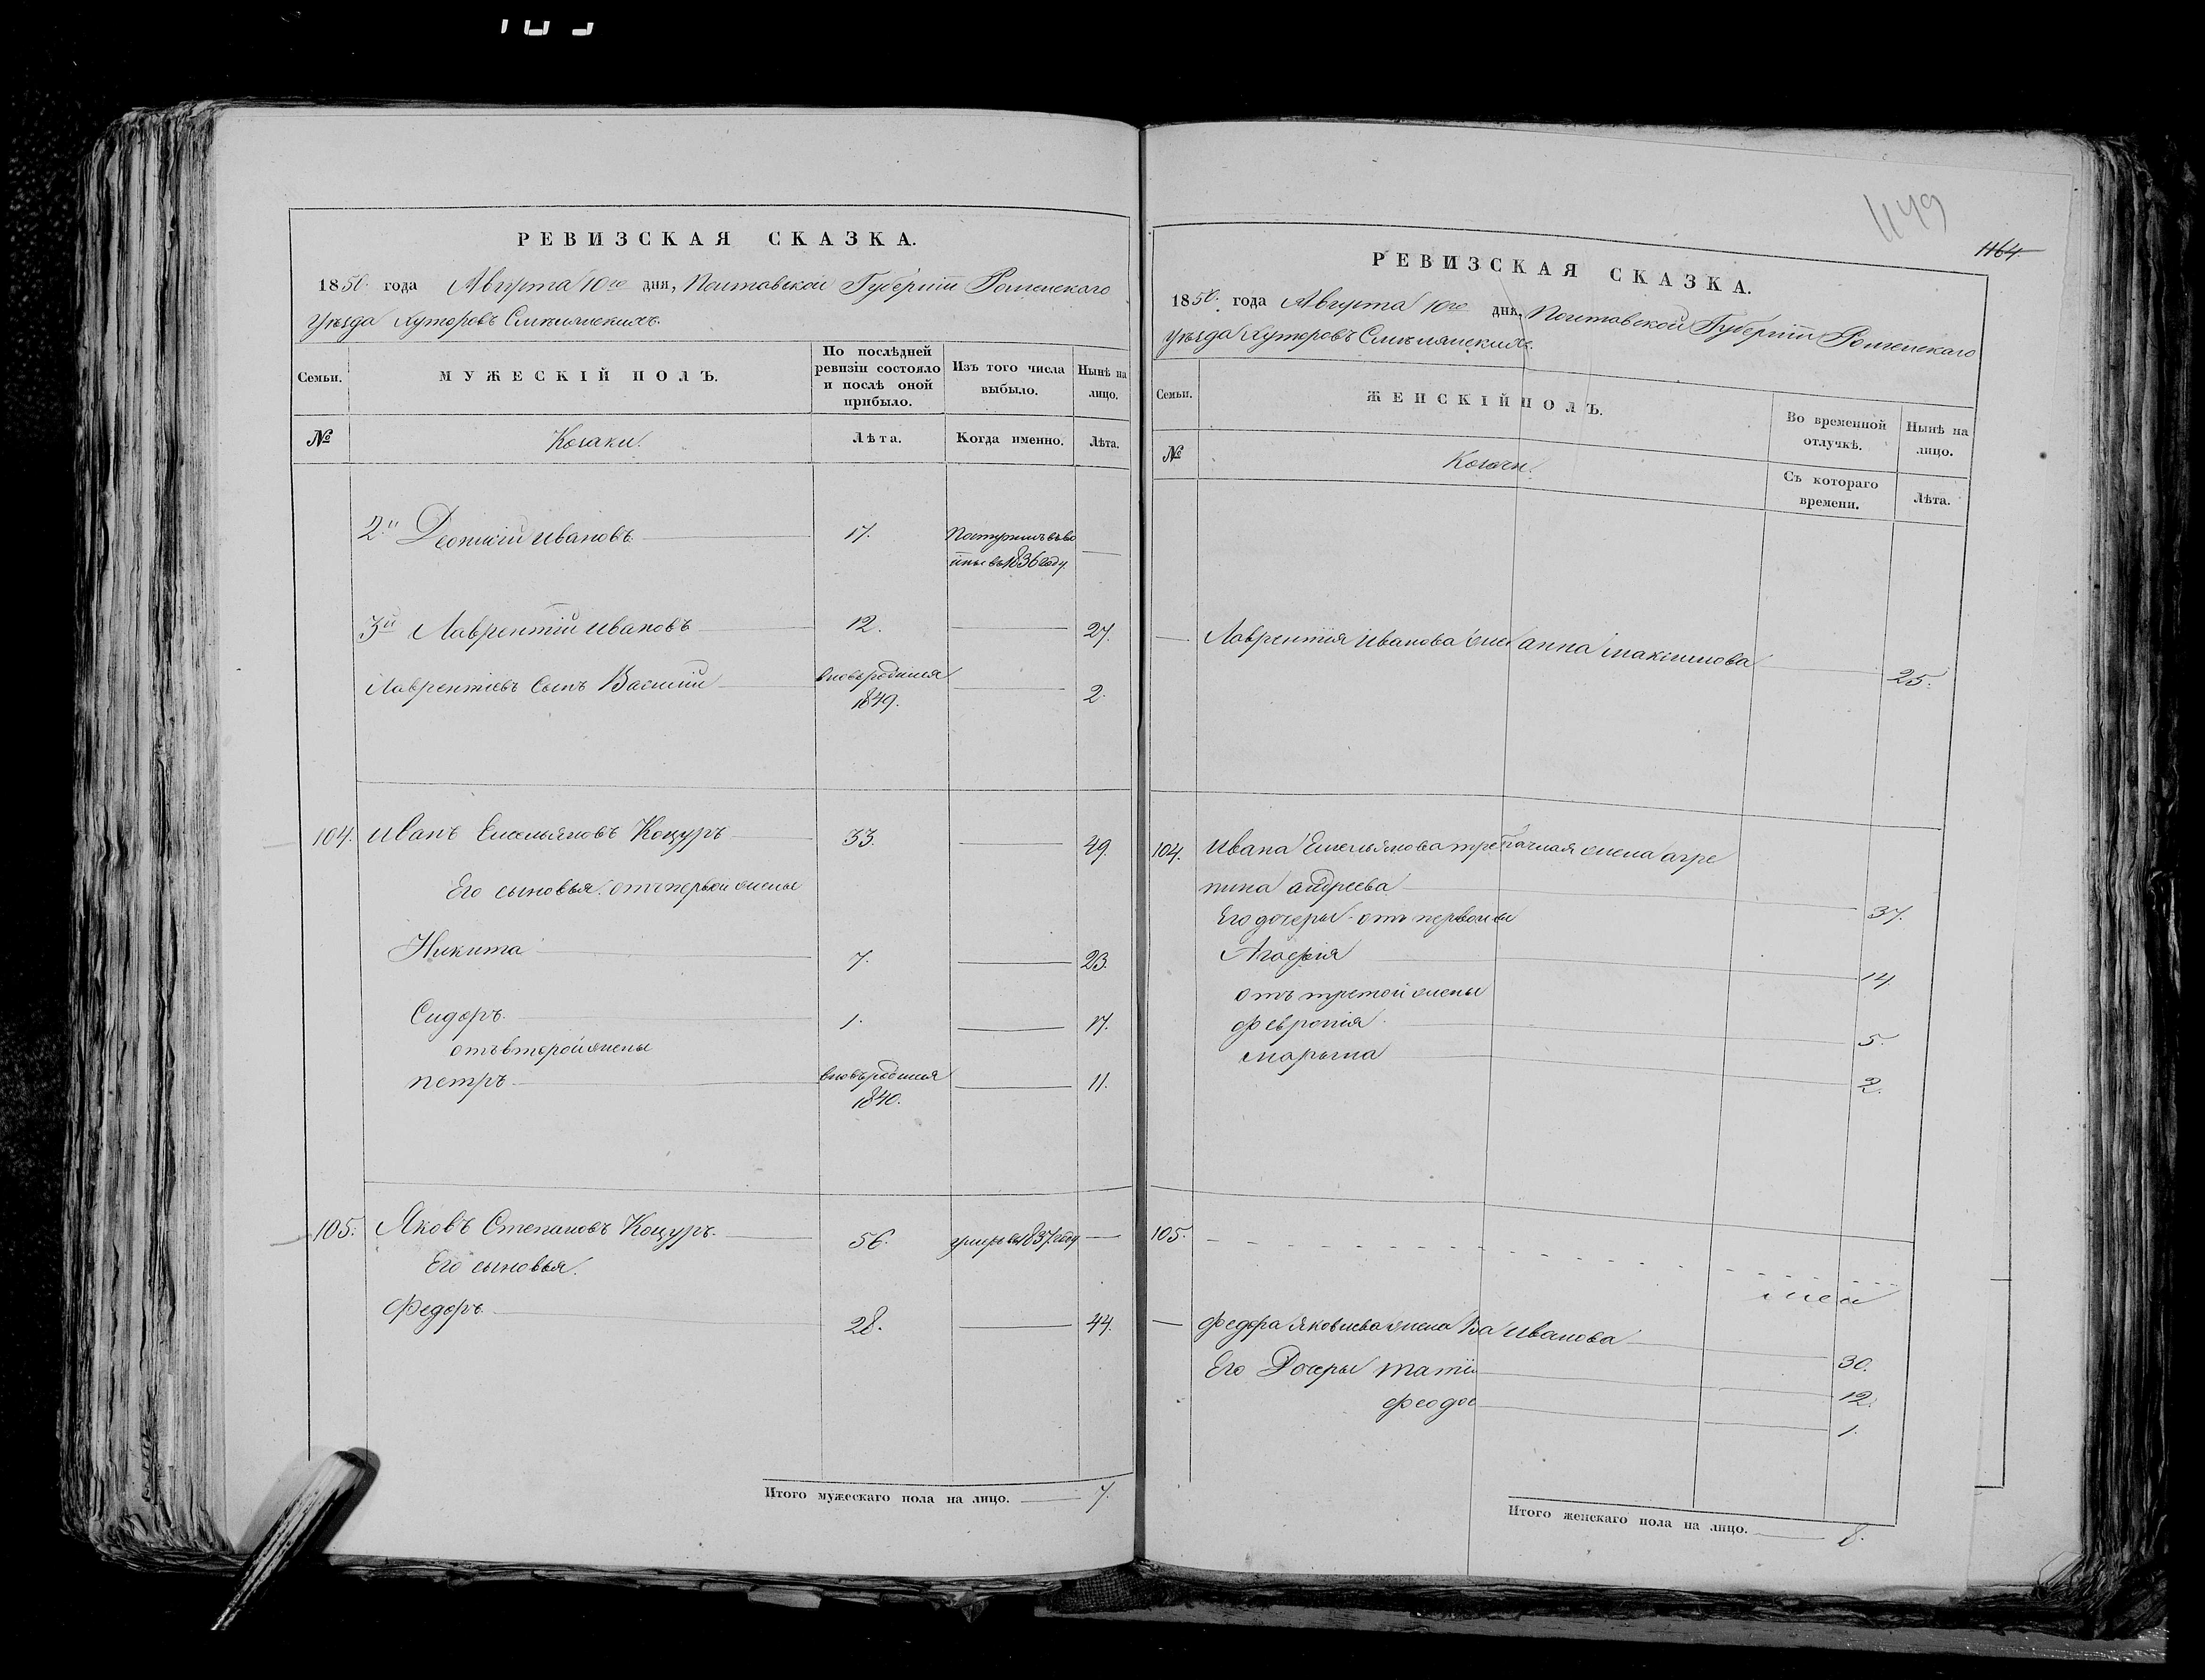 1149
1164
РЕВИЗСКАЯ СКАЗКА.
1850. года Августа 10го дня, Полтавской Губерніи Роменскаго
уѣзда Хуторовъ Смѣлянскихъ.
Семьи.
МУЖЕСКІЙ ПОЛЪ.
По послѣдней
ревизіи состояло
и послѣ оной
прибыло.
Изъ того числа
выбыло.
Нынѣ на
лицо.
№
Козаки.
Лѣта.
Когда именно.
Лѣта.
2й Деонисий Ивановъ 17. Поступилъ въ во
въ 1836 году.
3й Лаврентій Ивановъ 12. 27.
Лаврентіевъ Сынъ Василий вновьродился 2.
1849.
104. Иванъ Емельяновъ Коцуръ 33. 49.
Его сыновья отъ первой жены
Никита 7. 23.
Сидоръ. 1. 17.
отъ второй жены
петръ. вновьродился 11.
1840.
105. Яковъ Степановъ Коцуръ. 56. умеръ въ 1837. году
Его сыновья.
Федоръ. 28. 44.
Итого мужескаго пола на лицо. 7.
РЕВИЗСКАЯ СКАЗКА.
1850. года Августа 10го дня, Полтавской Губерніи Роменскаго
уѣзда Хуторовъ Смѣлянскихъ.
Семьи.
ЖЕНСКІЙ ПОЛЪ.
Во временной
отлучкѣ.
Нынѣ на
лицо.
№
Козачки.
Съ котораго
времени.
Лѣта.
Лаврентія Иванова анна максимова 25.
104. Ивана Емельянова жена агре
пина андреева 37.
Его дочеры отъ первой
Агафія 14.
отъ третой жены
февронія. 5.
марына 2.
105.
федора Яковлева жена Иванова 30.
Его Дочеры тати 12.
феодос 1.
Итого женскаго пола на лицо. 8.